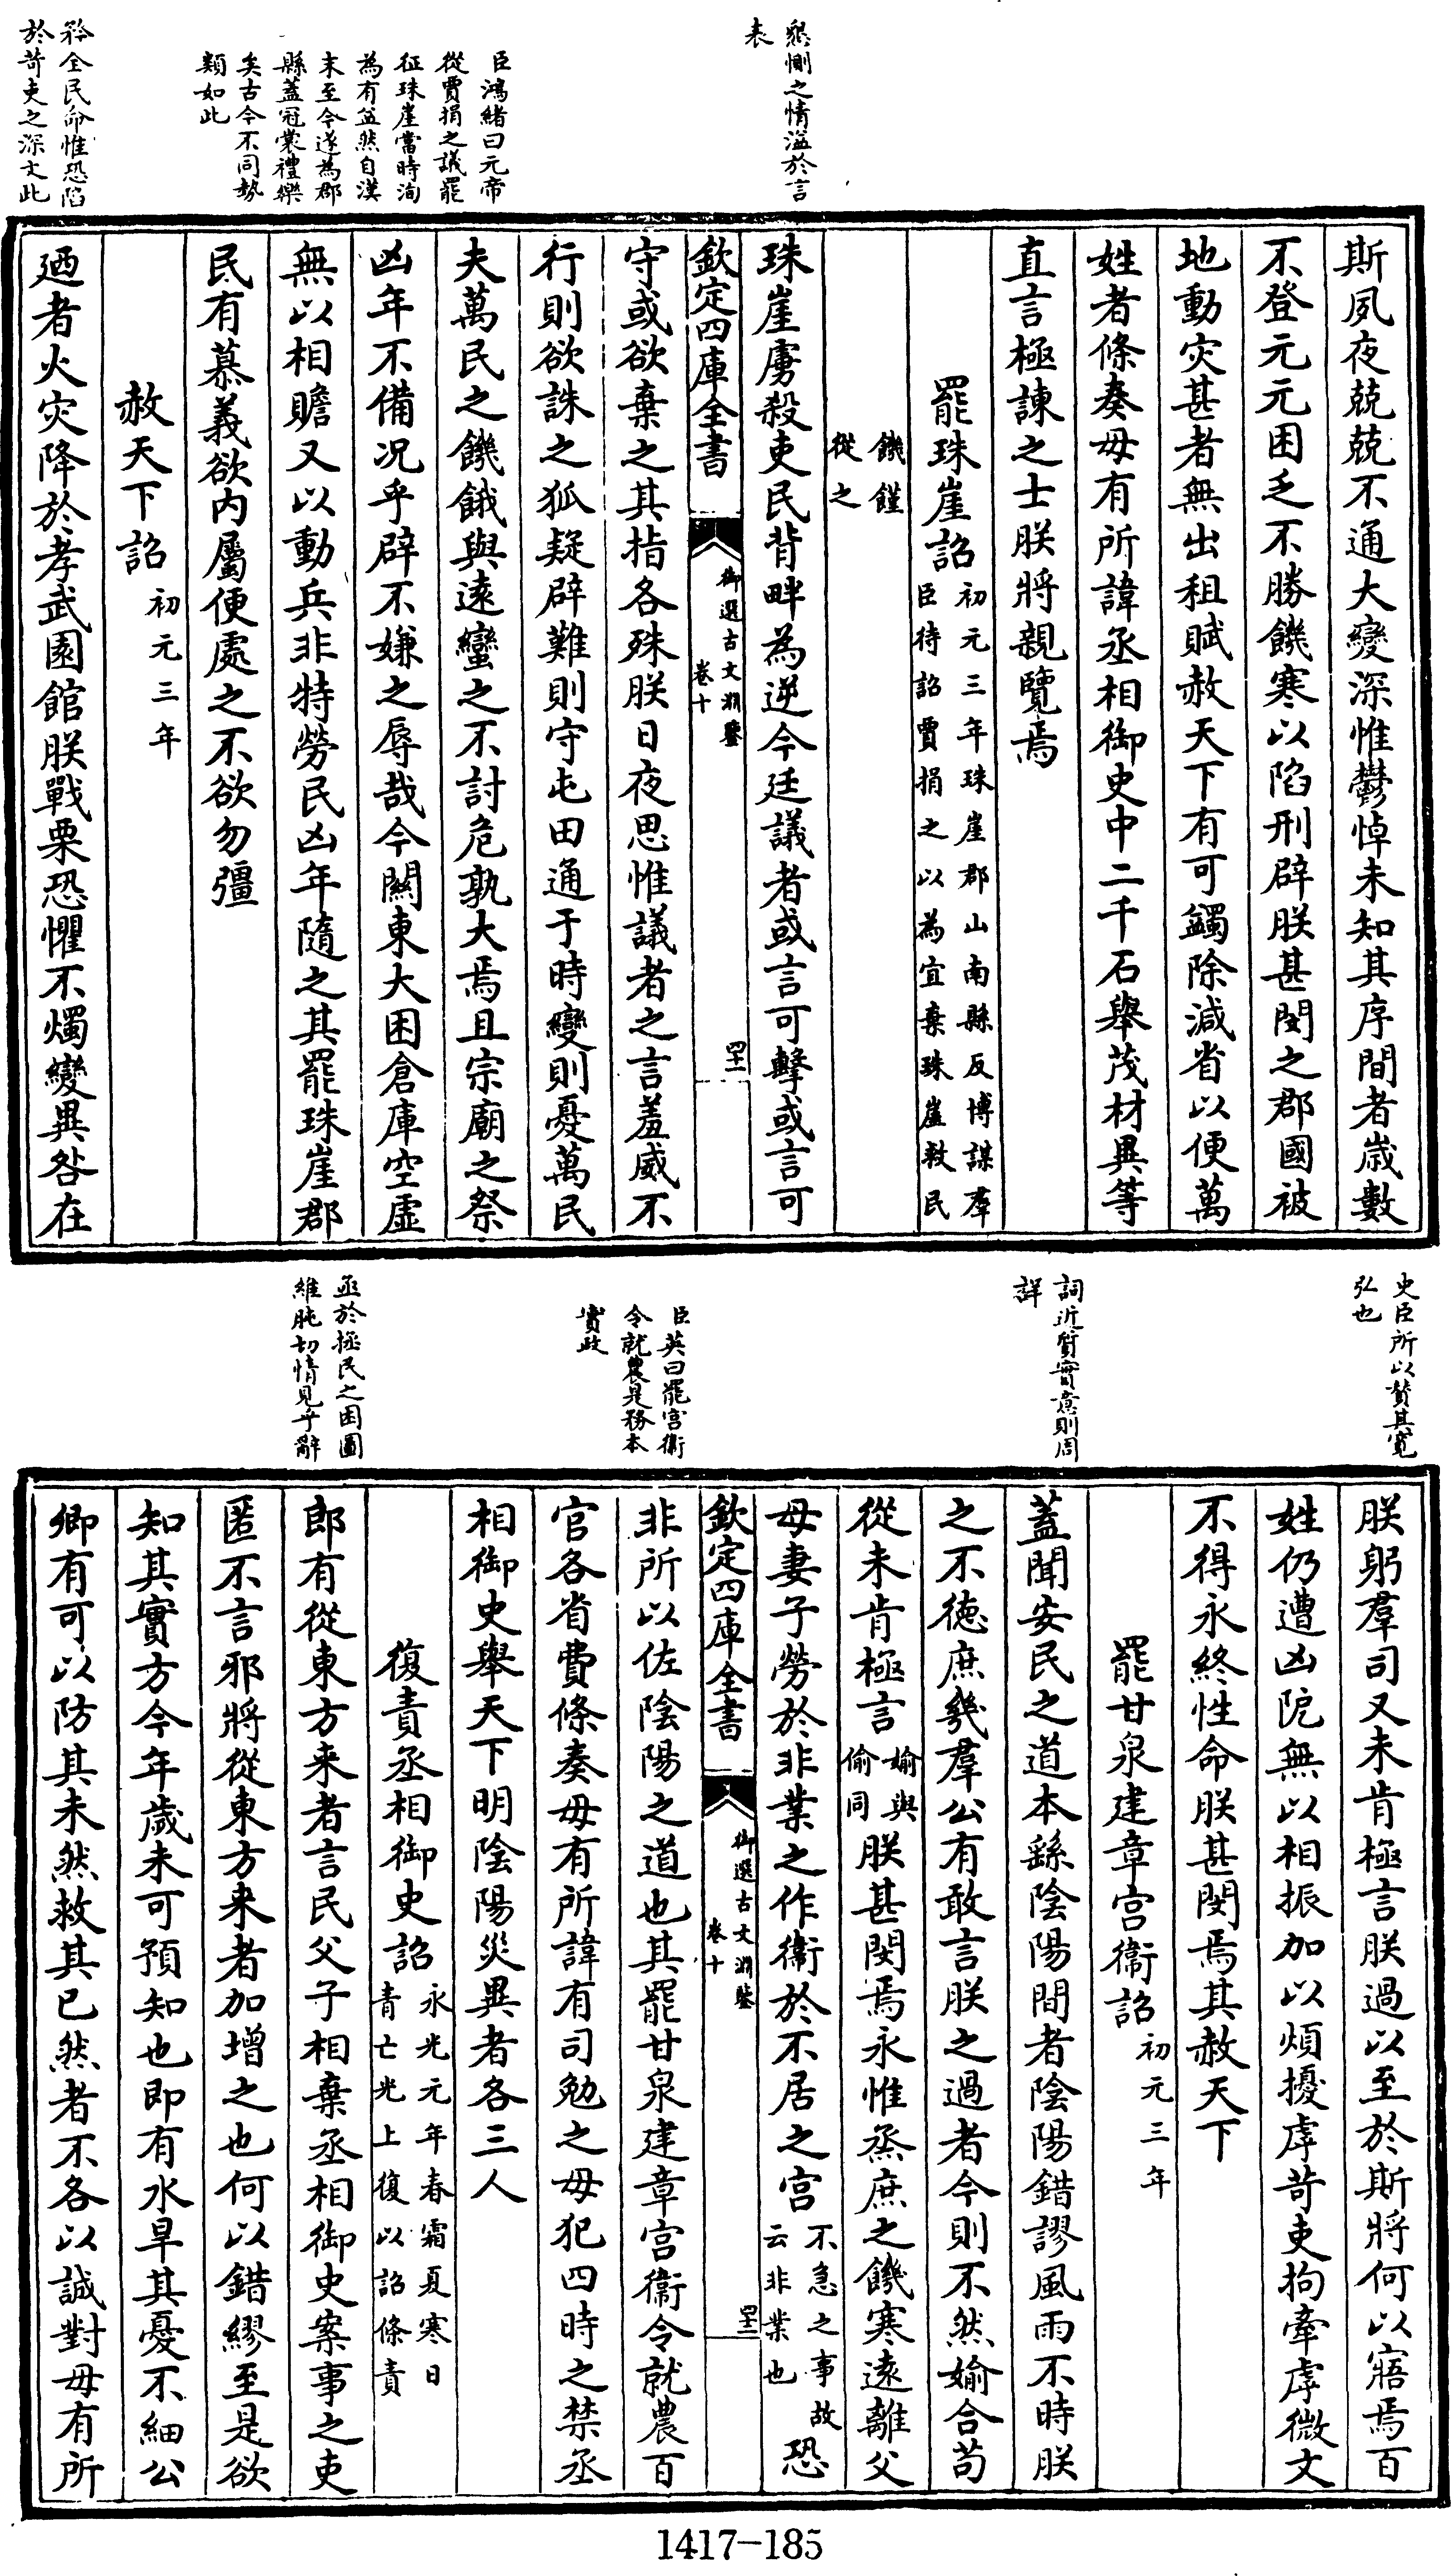 懇惻之情溢於言
表
臣鴻緒曰元帝
從賈捐之議罷
征珠崖當時洵
為有益然自漢
末至今遂為郡
縣蓋冠裳禮樂
矣古今不同勢
類如此
矜全民命惟恐陷
於苛吏之深文此
斯夙夜兢兢不通大變深惟鬱悼未知其序間者歲數
不登元元困乏不勝饑寒以陷刑辟朕甚閔之郡國被
地動灾甚者無出租賦赦天下有可蠲除減省以便萬
姓者條奏毋有所諱丞相御史中二千石舉茂材異等
直言極諫之士朕將親覽焉
罷珠崖詔初元三年珠崖郡山南縣反博謀羣
臣待詔賈捐之以為宜棄珠崖救民
饑饉
從之
珠崖虜殺吏民背畔為逆今廷議者或言可擊或言可
欽定四庫全書
御選古文淵鑒
卷十
四十一
守或欲棄之其指各殊朕日夜思惟議者之言羞威不
行則欲誅之狐疑辟難則守屯田通于時變則憂萬民
夫萬民之饑餓與遠蠻之不討危孰大焉且宗廟之祭
凶年不備况乎辟不嫌之辱哉今關東大困倉庫空虛
無以相贍又以動兵非特勞民凶年隨之其罷珠崖郡
民有慕義欲内屬便處之不欲勿彊
赦天下詔初元三年
廼者火灾降於孝武園館朕戰栗恐懼不燭變異咎在
史臣所以贊其寬
弘也
詞近質實意則周
詳
臣英曰罷宫衛
令就農是務本
實政
亟於拯民之困圖
維肫切情見乎辭
朕躬羣司又未肯極言朕過以至於斯將何以寤焉百
姓仍遭凶阨無以相振加以煩擾虖苛吏拘牽虖微文
不得永終性命朕甚閔焉其赦天下
罷甘泉建章宫衛詔初元三年
蓋聞安民之道本繇陰陽間者陰陽錯謬風雨不時朕
之不德庶幾羣公有敢言朕之過者今則不然媮合苟
從未肯極言媮與偷同朕甚閔焉永惟烝庶之饑寒遠離父
母妻子勞於非業之作衛於不居之宫不急之事故云非業也恐
欽定四庫全書
御選古文淵鑒
卷十
四十二
非所以佐陰陽之道也其罷甘泉建章宫衛令就農百
官各省費條奏毋有所諱有司勉之毋犯四時之禁丞
相御史舉天下明陰陽災異者各三人
復責丞相御史詔永光元年春霜夏寒日
青亡光上復以詔條責
郎有從東方来者言民父子相棄丞相御史案事之吏
匿不言邪將從東方来者加增之也何以錯繆至是欲
知其實方今年歲未可預知也即有水旱其憂不細公
卿有可以防其未然救其已然者不各以誠對毋有所
1417-185